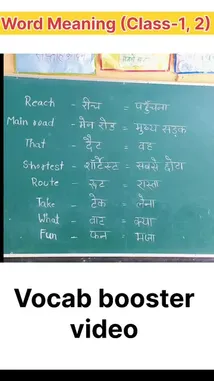 Word Meaning (Class-1, 2)
Reach - रीच = पहुँचना
Main road - मेन रोड = मुख्य सड़क
That - दैट = वह
Shortest - शॉर्टेस्ट = सबसे छोटा
Route - रूट = रास्ता
Take - टेक = लेना
What - वाट = क्या
Fun - फन = मज़ा
Vocab booster
video